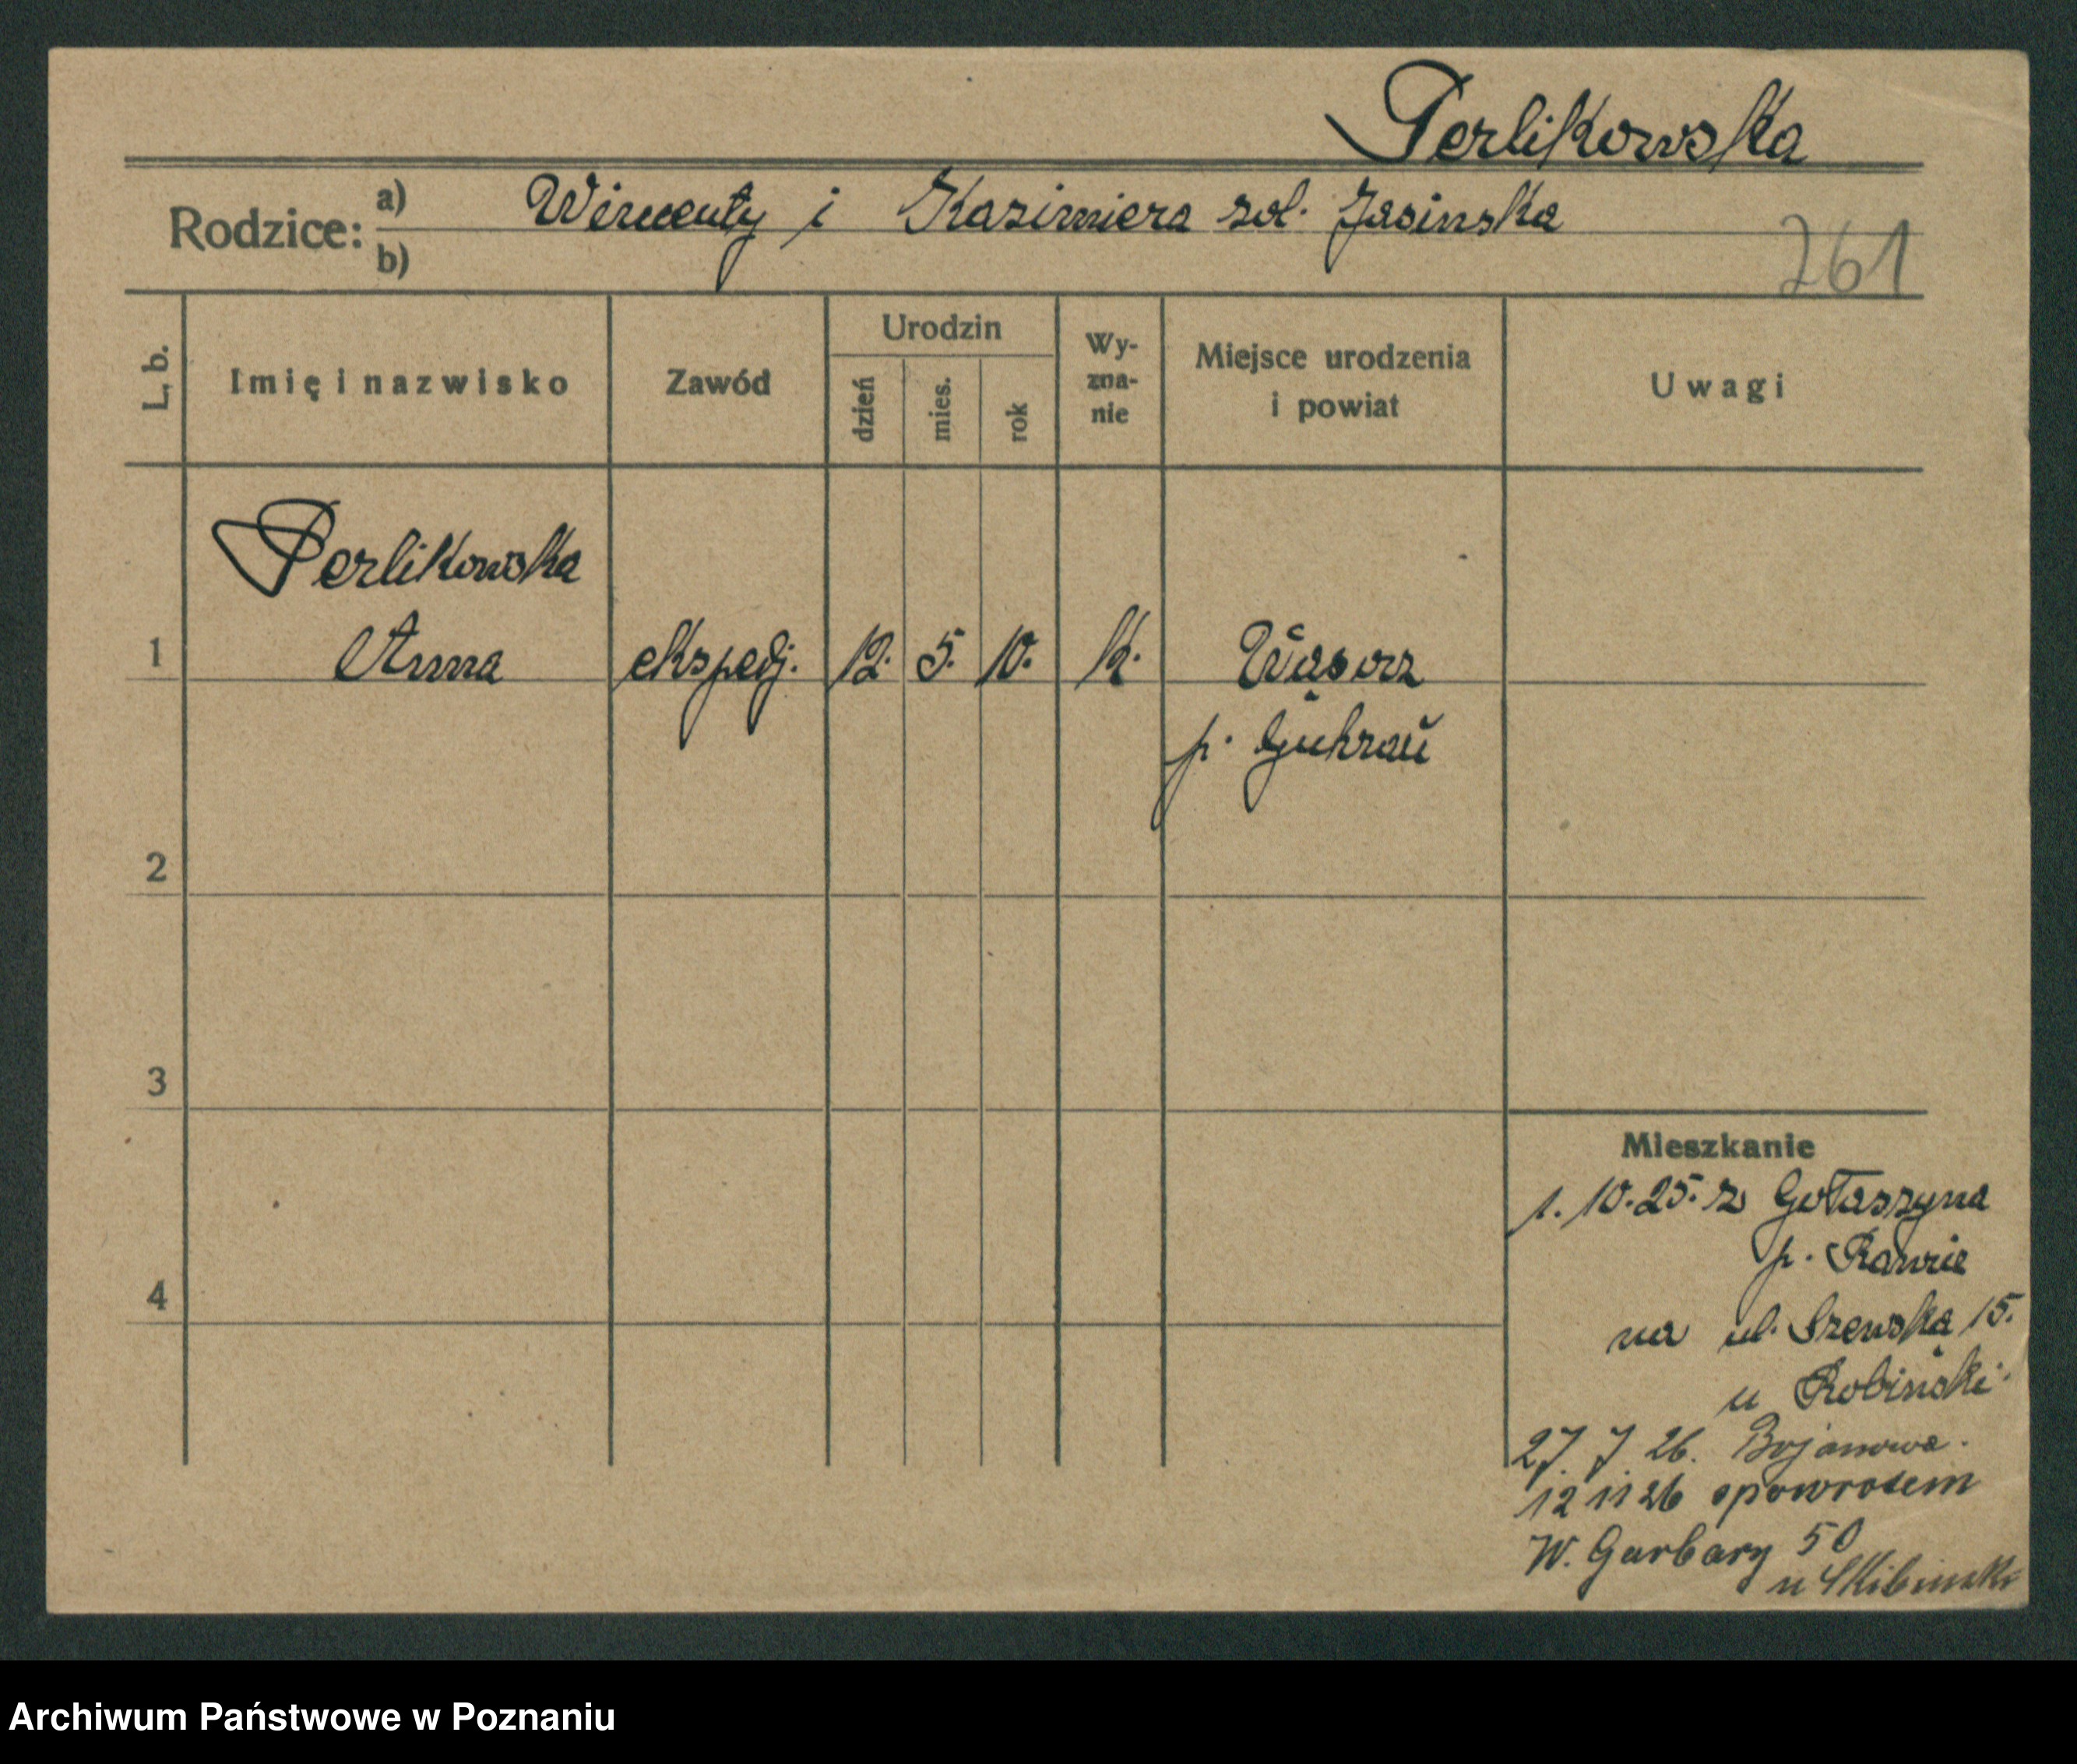 Perlikowska
Rodzice: a) Wincenty i Kazimiera zd. Jasinska
b)
761
L. b.
Imię i nazwisko
Zawód
Urodzin
dzień
mies.
rok
Wy-
zna-
nie
Miejsce urodzenia
i powiat
Uwagi
Perlikowska
1 Anna ekspedj. 12. 5. 10. k. Wąsosz
p. Guhrau
2
3
4
Mieszkanie
1. 10. 25. z Gołaszyna
p. Rawic
na ul. Szewską 15.
u Robiński
27. 7 26. Bojanowa.
12 11 26 spowrotem
W. Garbary 50
u Skibinski
Archiwum Państwowe w Poznaniu